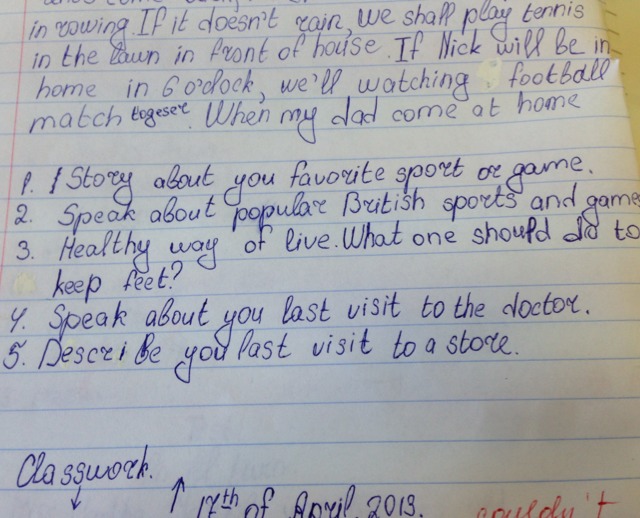 in rowing. If it doesn't rain, we shall play tennis
in the lawn in front of house. If Nick will be in
home in 6 o'clock, we'll watching football
match togeser. When my dad come at home
1. Story about you favorite sport or game.
2. Speak about popular British sports and game
3. Healthy way of live. What one should do to
keep feet?
4. Speak about you last visit to the doctor.
5. Describe you last visit to a store.
Classwork.
17th of April, 2019. couldn't